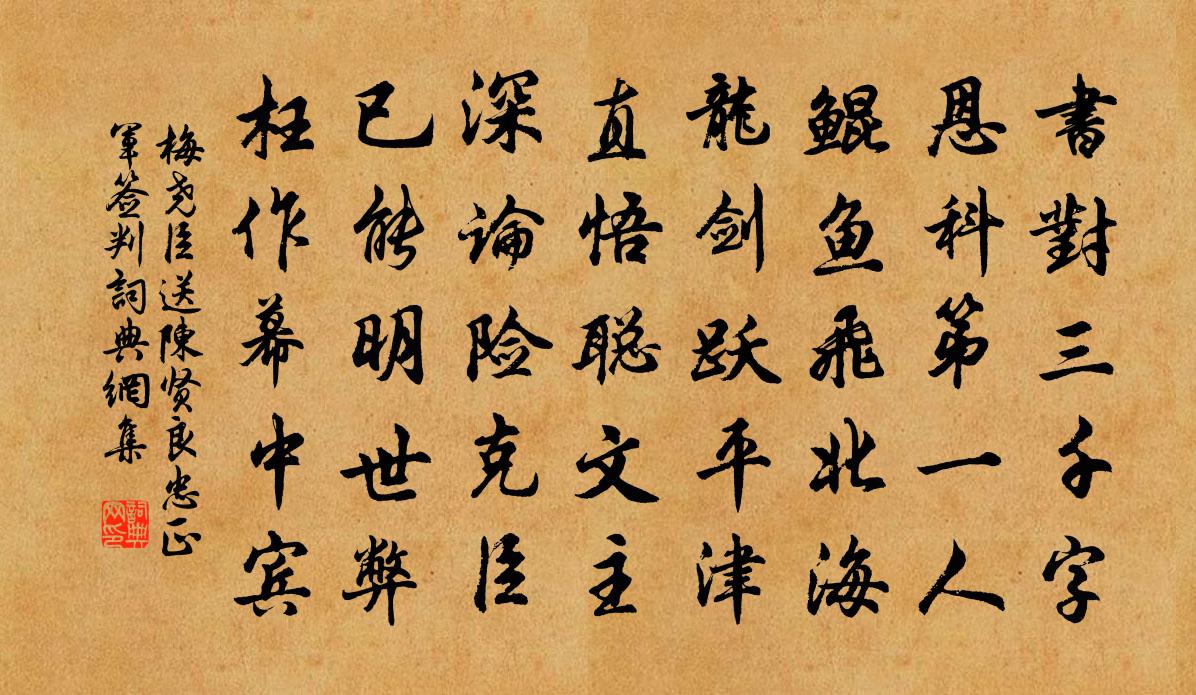 書對三千字
恩科第一人
鲲鱼飛北海
龍剑跃平津
直悟聪文主
深論险克臣
已能明世弊
枉作幕中宾
梅尧臣送陳贤良忠正
軍签判詞典網集
詞典网印